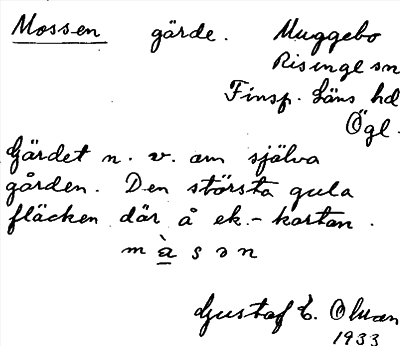 Mossen gärde. Muggebo
Risinge sn
Finsp. Läns hd
Ögl.
Gärdet n. v. om själva
gården. Den största gula
fläcken där å ek.-kartan.
m à s ə n
Gustaf E. Olman
1933